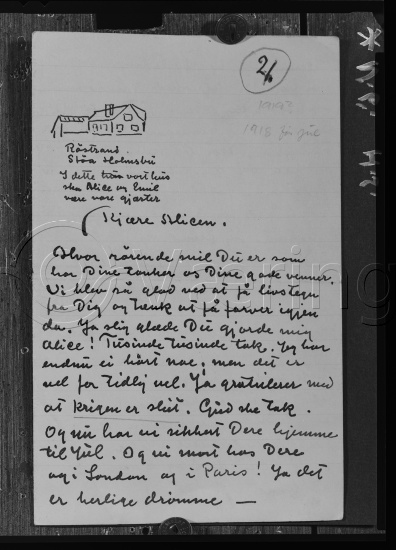 2/6
1917
1918 til jul
Råstrand
Støa Holmsbu
I dette træ vort hus
ska Alice og Emil
være vore gjæster
Kjære Alicen.
Hvor rörende snil Du er som
har Dine tanker os Dine gode venner.
Vi blev så glad ved at få livstegn
fra Dig og tænk at få farver igjen
da. Ja slig glæde Du gjorde mig
Alice! Tusinde tusinde tak. Jeg har
endnu ei hört noe, men det er
vel for tidlig vel. Ja gratulerer med
at krigen er slut. Gud ske tak.
Og nu har vi sikkert Dere hjemme
til Jul. Og vi mort hos Dere
og i London og i Paris! Ja det
er herlige drømme —